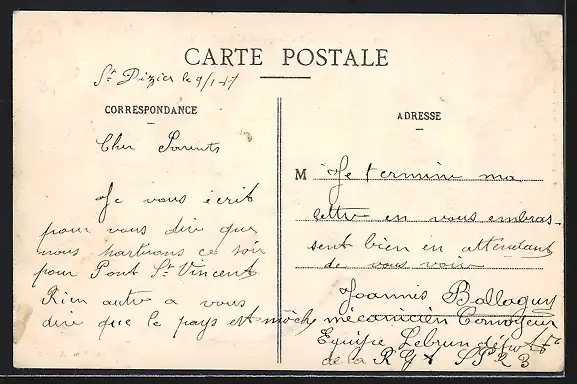 CARTE POSTALE
St Dizier le 9/1-17
CORRESPONDANCE
Cher Parents
Je vous écrit
pour vous dire que
nous partirons ce soir
pour Pont St Vincent
Rien autre a vous
dire que le pays est moche
ADRESSE
M Je termine ma
lettre en vous embras-
sent bien en attendant
de vous voir
Joannis Ballaguy
mécanicien Convoyeur
Equipe Lebrun
de la R G A S P R 3